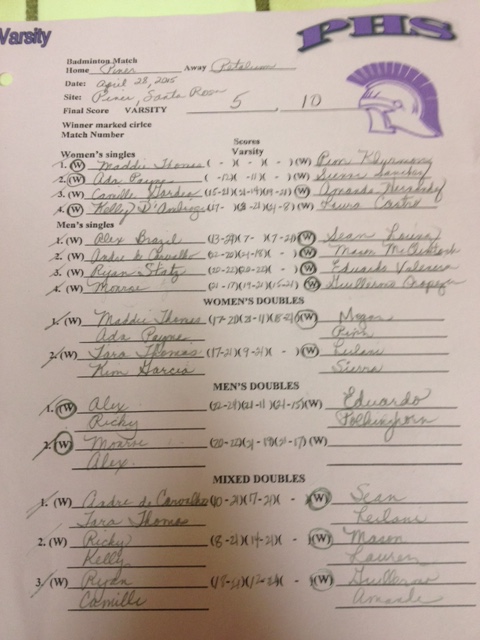 Varsity
PHS
Badminton Match
Home Piner Away Petaluma
Date: April 28, 2015
Site: Piner, Santa Rosa
Final Score VARSITY 5, 10
Winner marked cirlce
Match Number
Scores
Varsity
Women's singles
1. (W) Maddie Thomas ( - )( - )( - ) (W)
2. (W) Ada Payne ( -12)( -11)( - ) (W)
3. (W) Camille (15-21)(21-19)( ) (W) Amanda
4. (W) Kelly (17- )(8-21)(21-8) (W) Laura Castro
Men's singles
1. (W) Alex Brazil (13-24)(7- )(7-21) (W) Sean
2. (W) Andre de Carvalho (22-20)(21-18)( - ) (W) Mason McClintock
3. (W) Ryan Statz (20-22)(20-22)( - ) (W) Eduardo
4. (W) Monroe (21-17)(19-21)(15-21) (W) Guillermo
WOMEN'S DOUBLES
1. (W) Maddie Thomas (17-21)(21-11)(18-21) (W) Megan
Ada Payne
2. (W) Tara Thomas (17-21)(9-21)( - ) (W) Leilani
Kim Garcia Sierra
MEN'S DOUBLES
1. (W) Alex (22-24)(21-11)(21-15)(W) Eduardo
Ricky
2. (W) Monroe (20-22)(21-19)(21-17) (W)
Alex
MIXED DOUBLES
1. (W) Andre de Carvalho (10-21)(17-21)( - )(W) Sean
Tara Thomas Leilani
2. (W) Ricky (8-21)(14-21)( - )(W) Mason
Kelly Lauren
3. (W) Ryan (18-21)(12-21)( - )(W) Guillermo
Camille Amanda